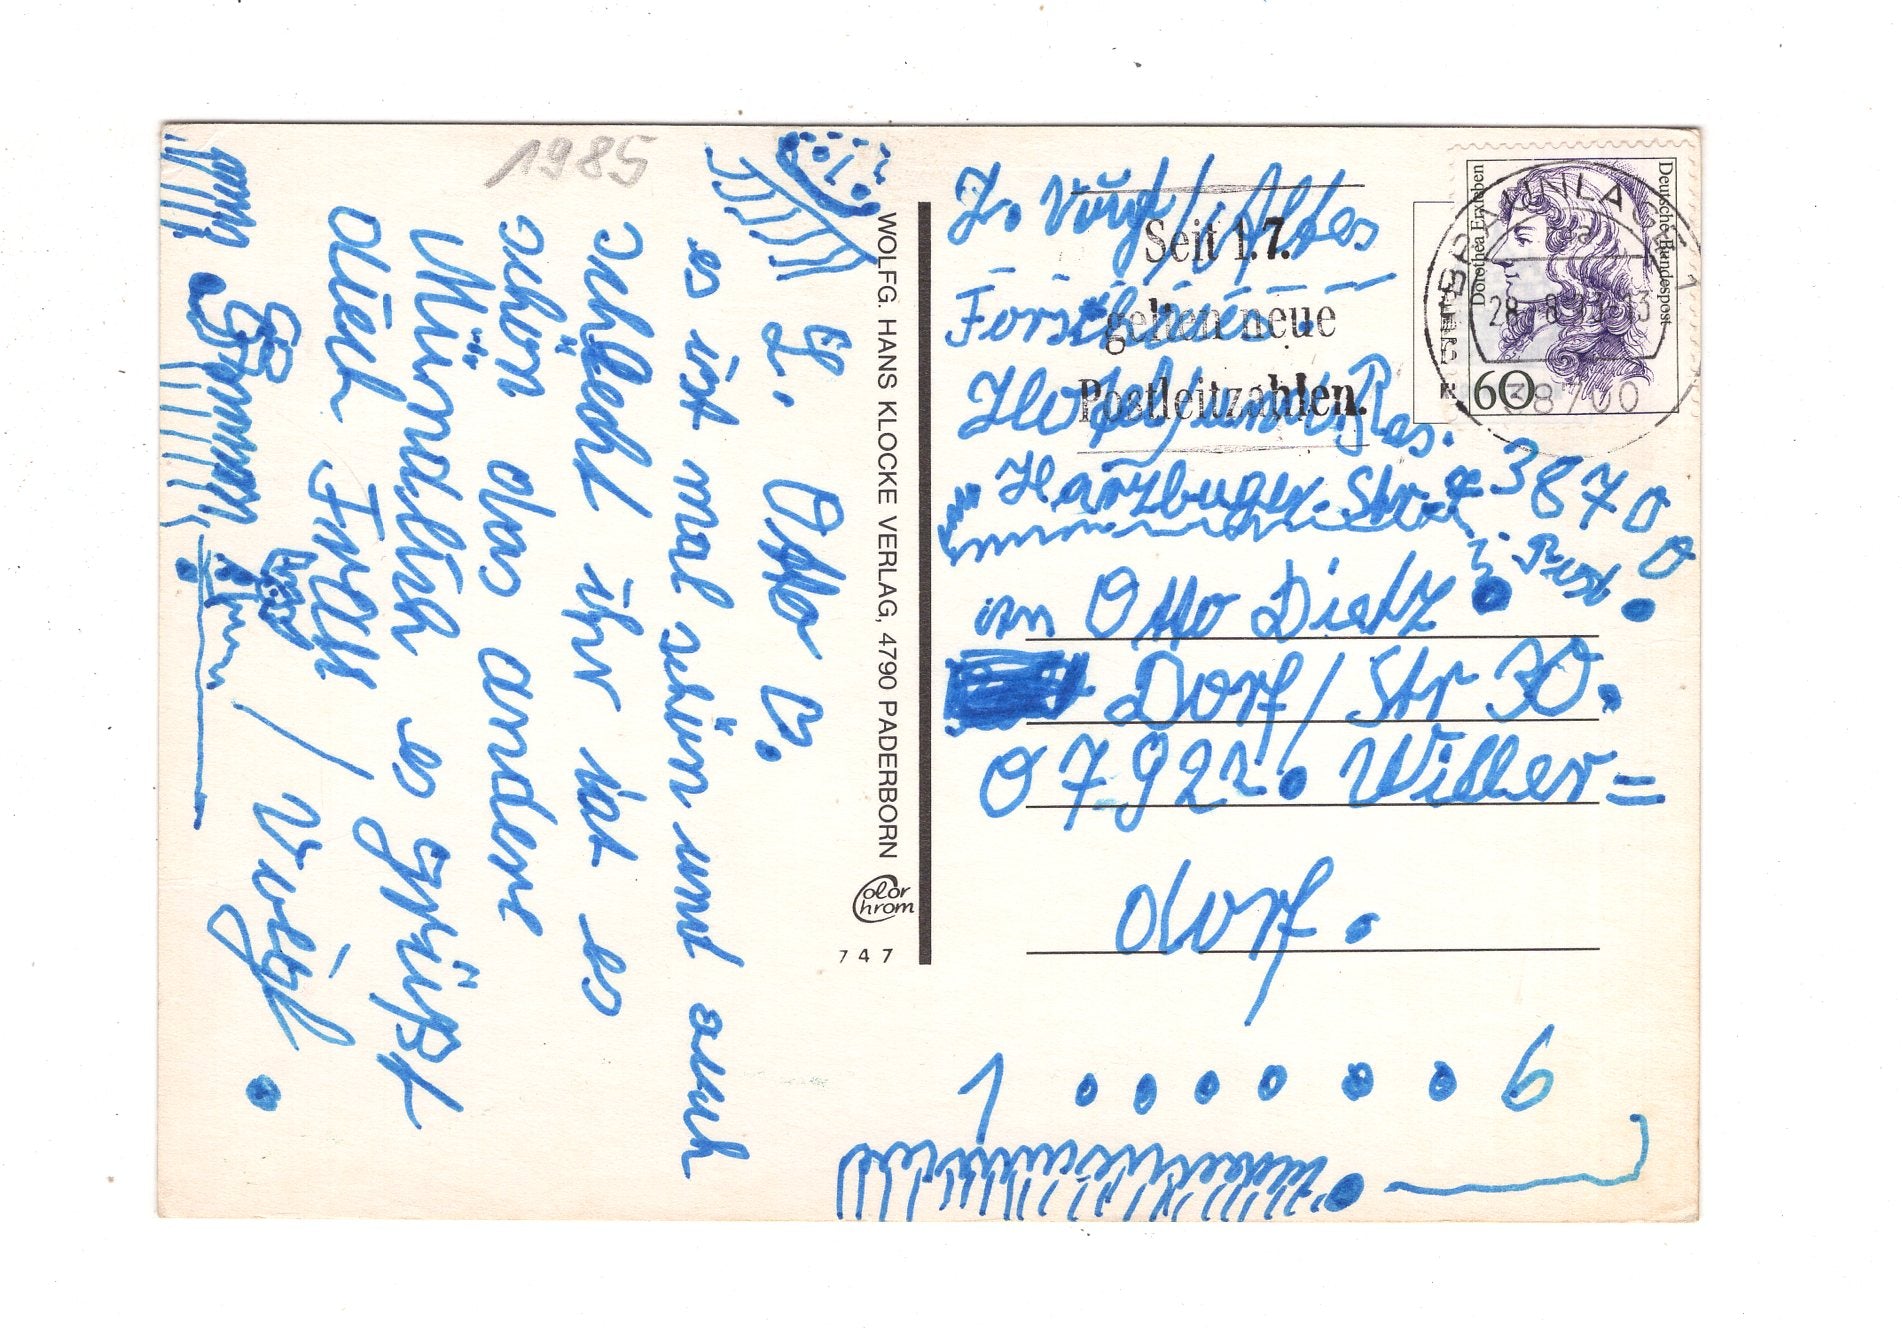 1985
L. Otto D.
es ist mal schön und auch
schlecht ihr ist es
schon das andere
Mündlich es grüßt
Dich Frau / Vogl.
WOLFG. HANS KLOCKE VERLAG, 4790 PADERBORN
Color Chrom
747
Seit 1.7.
gelten neue
Postleitzahlen.
Deutsche Bundespost
Dorothea Erxleben
60
BRAUNLAGE 1
38700
I. Vogl / Altes
Forsthaus
Hotel und Res.
Harzburger. Str.
38700
Post.
an Otto Dietz
Dorf / Str 30.
07922. Willer=
dorf.
1 . . . . . . 6